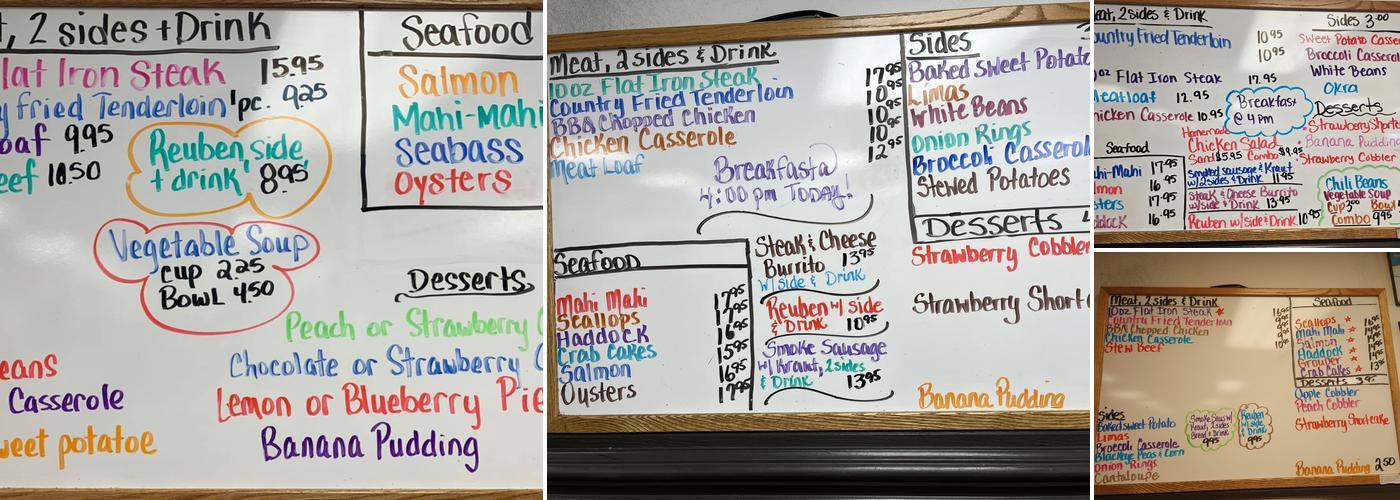 t, 2 sides + Drink
lat Iron Steak 15.95
y fried Tenderloin 1pc. 9.25
oaf 9.95
eef 10.50
Reuben, side
+ drink 8.95
Vegetable Soup
cup 2.25
Bowl 4.50
Seafood
Salmon
Mahi-Mahi
Seabass
Oysters
Desserts
Peach or Strawberry C
Chocolate or Strawberry C
Lemon or Blueberry Pie
Banana Pudding
eans
Casserole
weet potatoe
Meat, 2 sides & Drink
10oz Flat Iron Steak 17.95
Country Fried Tenderloin 10.95
BBQ Chopped Chicken 10.95
Chicken Casserole 10.95
Meat Loaf 12.95
Breakfasta
4:00 pm TODAY!
Seafood
Mahi Mahi 17.95
Scallops 17.95
Haddock 16.95
Crab Cakes 15.95
Salmon 16.95
Oysters 17.95
Steak & Cheese
Burrito 13.95
w/ Side & Drink
Reuben w/ side
& Drink 10.95
Smoke Sausage
w/ Kraut, 2 sides
& Drink 13.95
Sides
Baked Sweet Potato
Limas
White Beans
Onion Rings
Broccoli Casserol
Stewed Potatoes
Desserts
Strawberry Cobbler
Strawberry Short
Banana Pudding
eat, 2 sides & Drink
ountry Fried Tenderloin 10.95
10.95
oz Flat Iron Steak 17.95
Meatloaf 12.95
hicken Casserole 10.95
Breakfast
@ 4 PM
Homemade
Chicken Salad
Sand $5.95 Combo $9.95
Seafood
ahi-Mahi 17.95
lmon 16.95
sters 17.95
ddock 16.95
Smoked sausage & Kraut
w/2 sides & Drink 11.95
Steak & Cheese Burrito
w/side & Drink 13.95
Reuben w/side & Drink 10.95
Sides 3.00
Sweet Potato Casser
Broccoli Casserol
White Beans
Okra
Desserts
Strawberry Shortc
Banana Pudding
Strawberry Cobbler
Chili Beans
Vegetable Soup
Cup 3.00 Bowl
Combo 9.95
Meat, 2 sides & Drink
10oz Flat Iron Steak
Country Fried Tenderloin
BBQ Chopped Chicken
Chicken Casserole
Stew Beef
Sides
Baked Sweet Potato
Limas
Broccoli Casserole
Blackeye Peas & Corn
Onion Rings
Cantaloupe
Smoke Saus w/
Kraut, 2 sides
Bread & Drink
9.95
Reuben
w/ side
& Drink
9.95
Seafood
Scallops
Mahi Mahi
Salmon
Haddock
Grouper
Crab Cakes
Desserts
Apple Cobbler
Peach Cobbler
Strawberry Shortcake
Banana Pudding 2.50